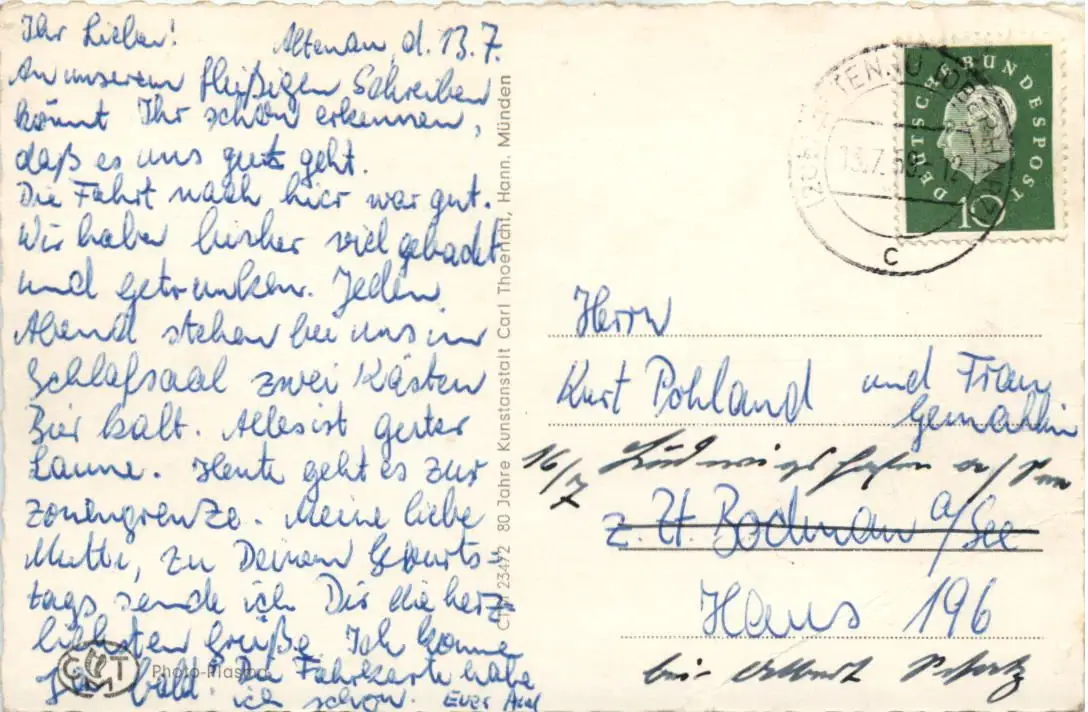 Ihr Lieben! Altenau, d. 13.7.
An unserem fleißigen Schreiben
könnt Ihr schön erkennen,
daß es uns gut geht.
Die Fahrt nach hier war gut.
Wir haben bisher viel gebadet
und getrunken. Jeden
Abend stehen bei uns im
Schlafsaal zwei Kästen
Bier kalt. Alles ist guter
Laune. Heute geht es zur
Zonengrenze. Meine liebe
Mutti, zu Deinem Geburts-
tag sende ich Dir die herz-
lichsten Grüße. Ich komme
bald. Die Fahrkarte habe
ich schon. Euer Axel
CTM 23472 80 Jahre Kunstanstalt Carl Thoericht, Hann. Münden
C T
Photo-Plastic
DEUTSCHE BUNDESPOST
10
(OBERHARZ)
13.7.
c
Herrn
Kurt Pohland und Frau
Gemahlin
16/7 Ludwigshafen a/
z. Zt. Bodman a/See
Haus 196
bei Albert